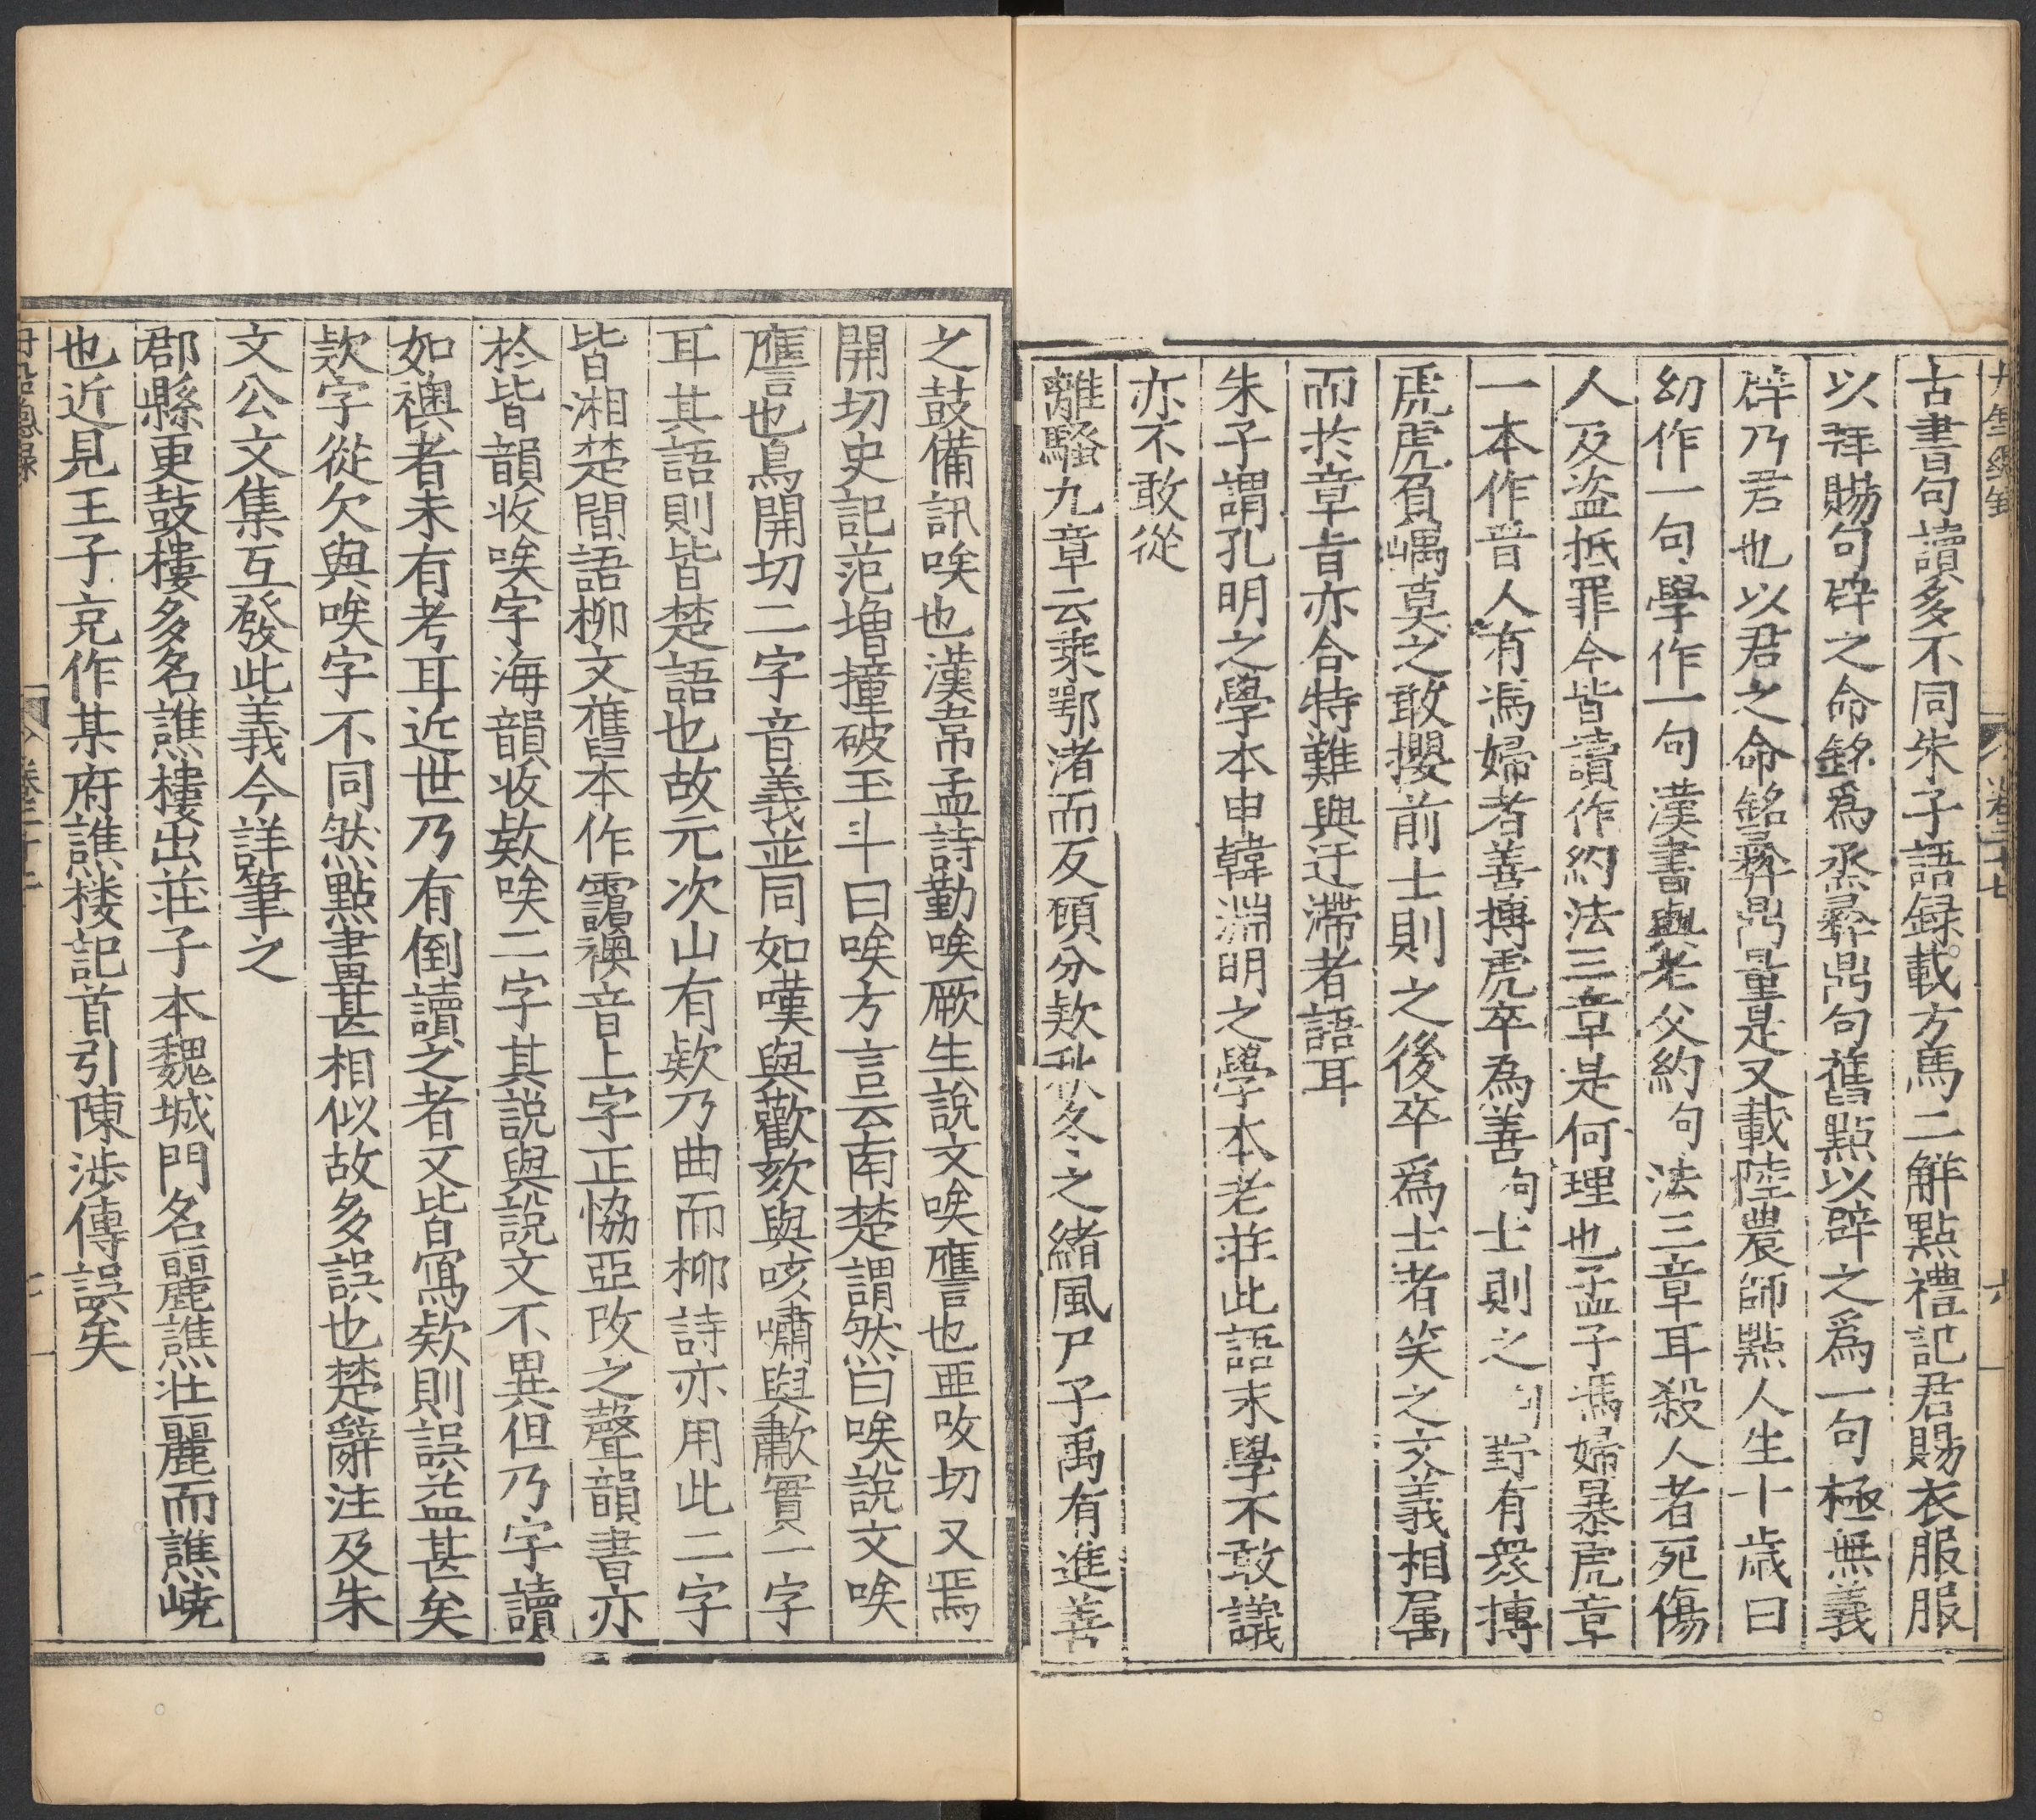 古書句讀多不同朱子語録載方馬二觧點禮記君賜衣服服
以拜賜句辟之命銘爲烝彞鼎句舊點以辟之爲一句極無義
辟乃君也以君之命銘彞鼎量是又載陸農師點人生十歳曰
幼作一句學作一句漢書與老父約句法三章耳殺人者死傷
人及盗抵罪今皆讀作約法三章是何理也孟子馮婦暴虎章
一本作晉人有馮婦者善搏虎卒為善句士則之句野有衆搏
虎虎負嵎莫之敢攖前士則之後卒爲士者笑之文義相属
而於章㫖亦合特難與迂滯者語耳
朱子謂孔明之學本申韓淵明之學本老莊此語末學不敢議
亦不敢從
離騷九章云乘鄂渚而反顧兮欸秋冬之緒風尸子禹有進善
之鼓備訊唉也漢韋孟詩勤唉厥生說文唉譍也亜攺切又焉
開切史記范増撞破玉斗曰唉方言云南楚謂然曰唉說文唉
譍也烏開切二字音義並同如嘆與歎欬與咳嘯與歗實一字
耳其語則皆楚語也故元次山有欸乃曲而柳詩亦用此二字
皆湘楚間語柳文舊本作靄襖音上字正恊亞攺之聲韻書亦
於皆韻收唉字海韻收欸唉二字其説與說文不異但乃字讀
如襖者未有考耳近世乃有倒讀之者又皆寫欸則誤益甚矣
欵字從欠與唉字不同然點畫甚相似故多誤也楚辭注及朱
文公文集互發此義今詳筆之
郡縣更鼓樓多名譙樓出莊子本魏城門名麗譙壮麗而譙嶢
也近見王子充作某府譙楼記首引陳渉傳誤矣